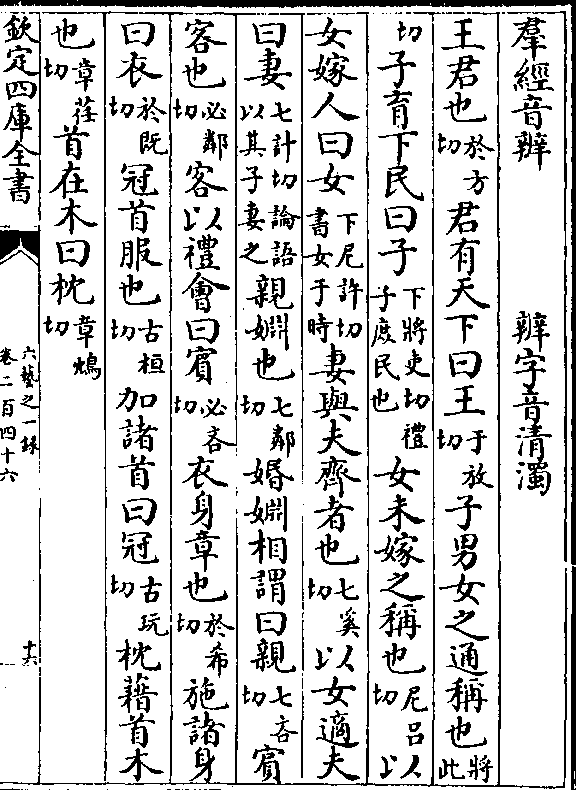 羣經音辨 辨字音清濁
王君也於方切君有天下曰王于放切子男女之通稱也將此
切子育下民曰子下將吏切禮子庶民也女未嫁之稱也尼呂切以
女嫁人曰女下尼許切書女于時妻與夫齊者也七奚切以女適夫
曰妻七計切論語以其子妻之親婣也七鄰切婚婣相謂曰親七吝切賓
客也必鄰切客以禮會曰賓必吝切衣身章也於希切施諸身
曰衣於既切冠首服也古桓切加諸首曰冠古玩切枕藉首木
也章荏切首在木曰枕章鴆切
欽定四庫全書
六藝之一録
卷二百四十六
十六